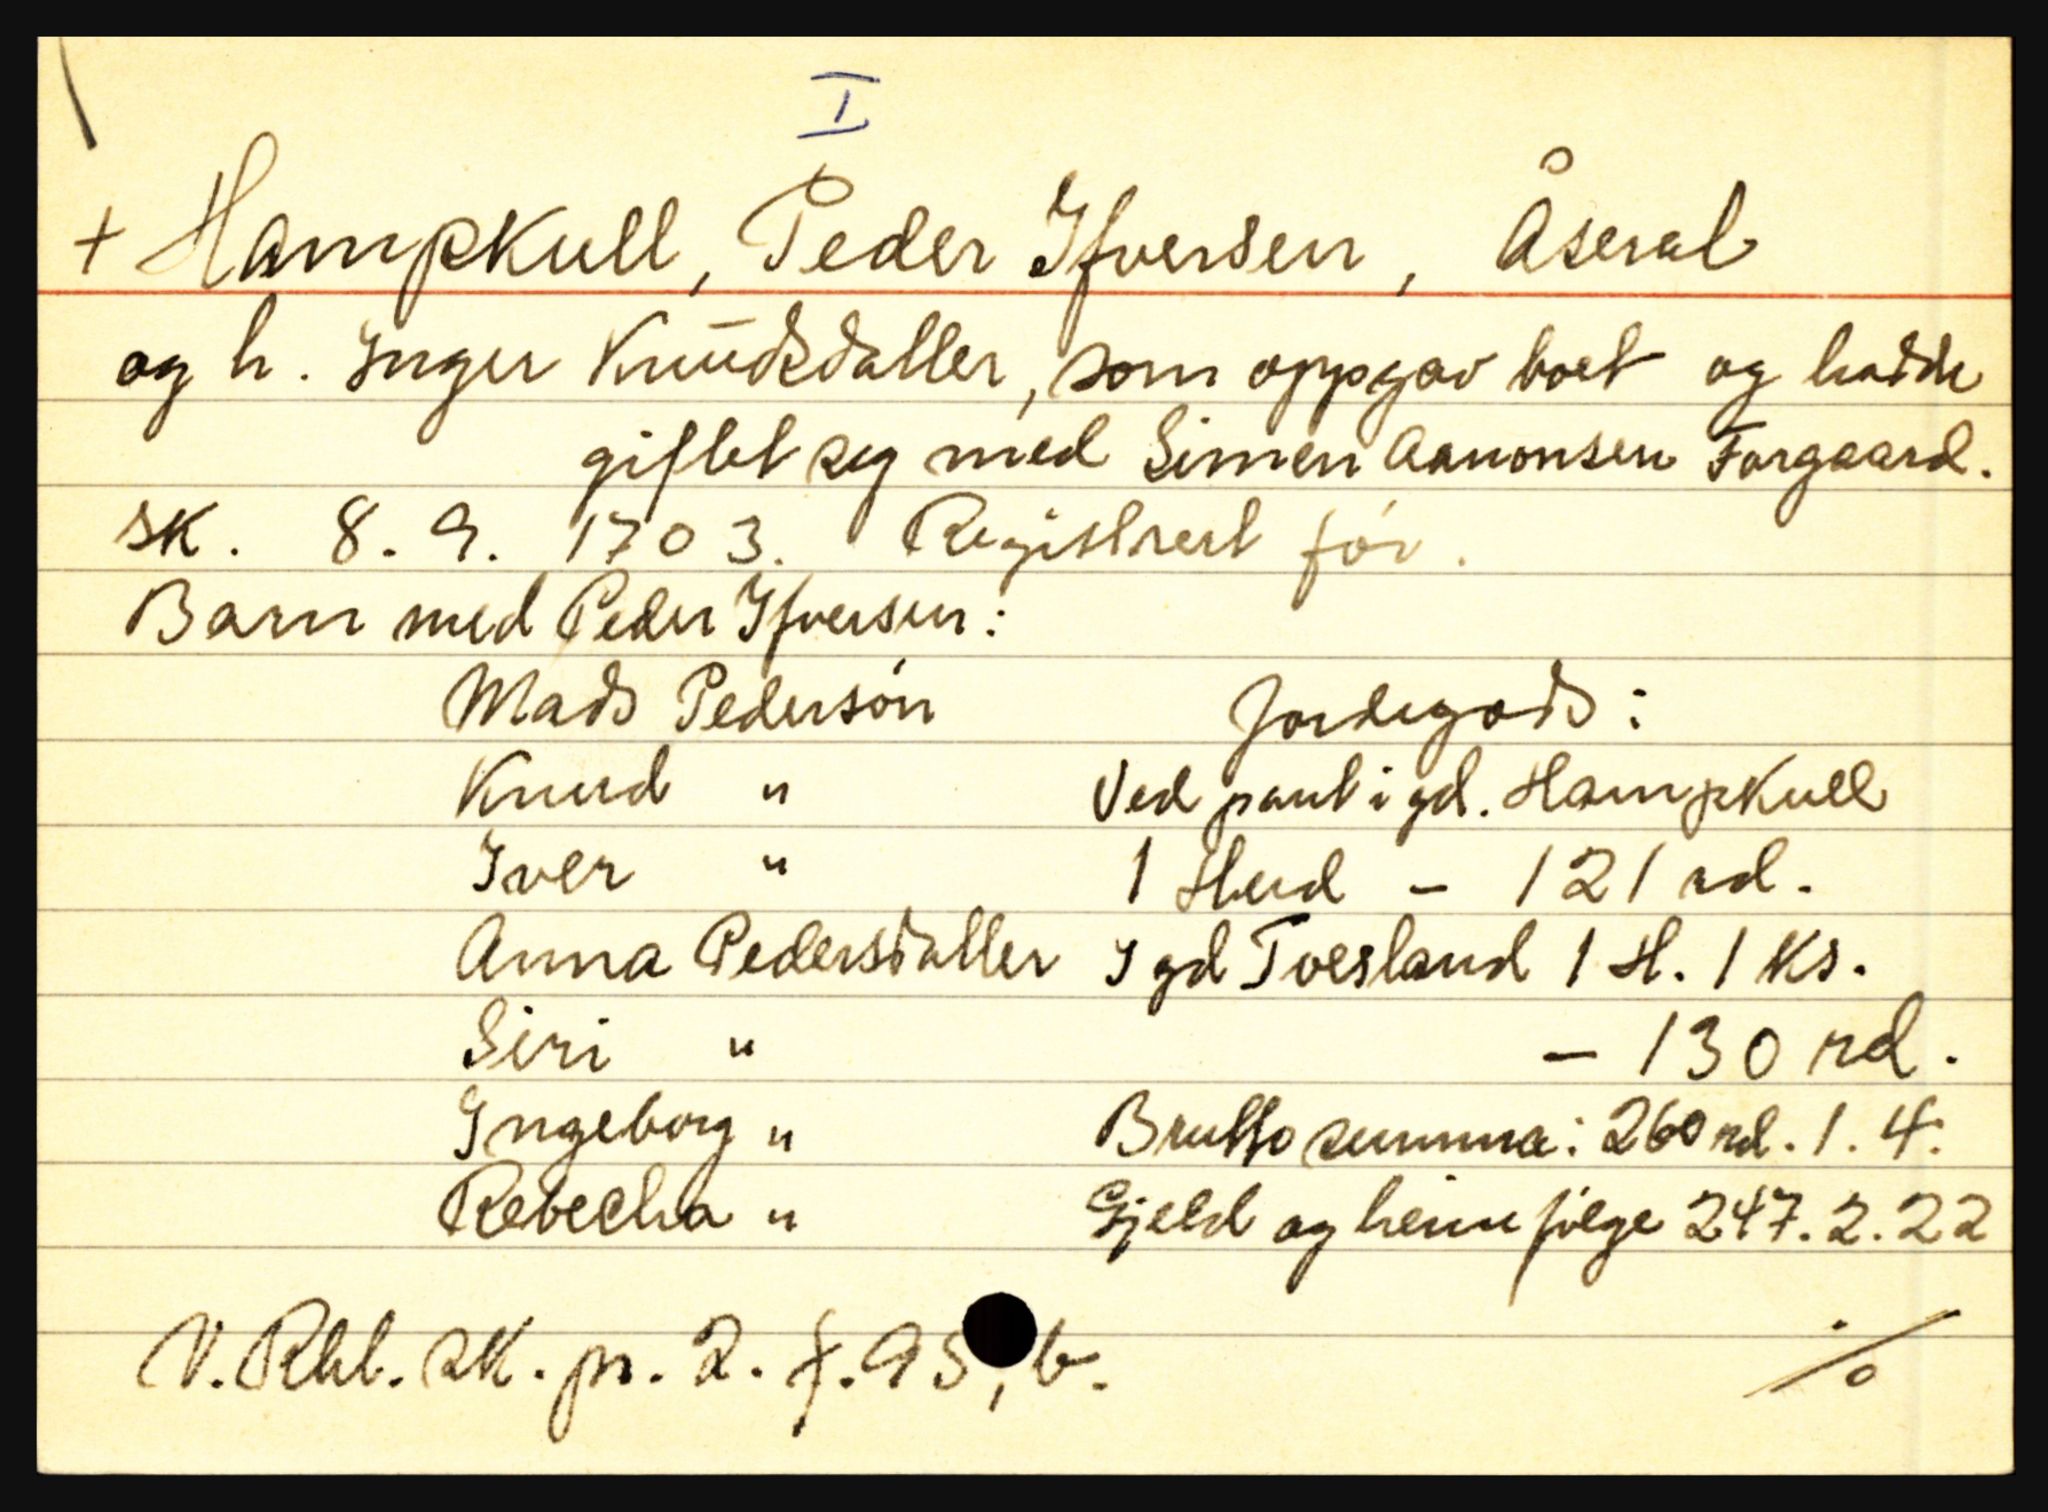 I
+ Hampkull, Peder Ifversen, Åseral
og h. Inger Knudsdatter, som oppgav boet og hadde
giftet seg med Simen Aanonsen Forgaard.
sk. 8. 9. 1703. Registrert før.
Barn med Peder Ifversen:
Mads Pedersøn
Knud "
Iver "
Anna Pedersdatter
Siri "
Ingeborg "
Rebecha "
Jordegods:
Ved pant i gd. Hampkull
1 Hud - 121 rd.
I gd Tvesland 1 H. 1 Ks.
- 130 rd.
Brutto summa: 260 rd. 1. 4.
Gjeld og heimfølge 247. 2. 22
V. Rbl. sk. pr. 2. f. 95, b.